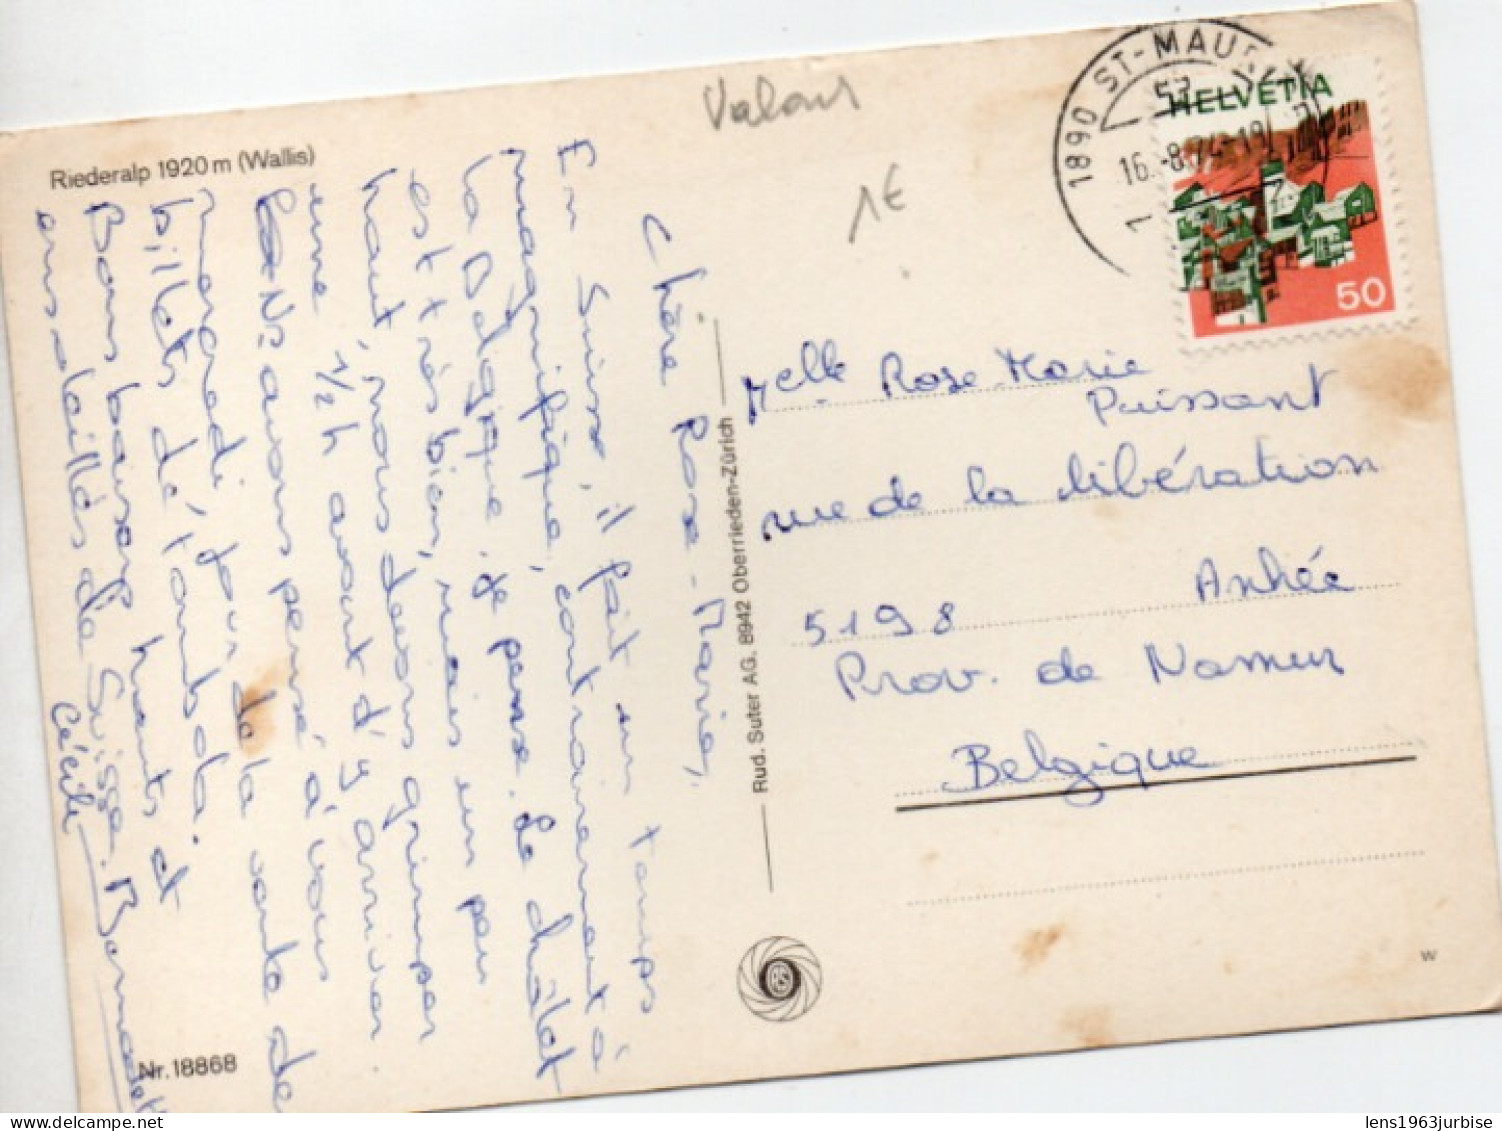 Riederalp 1920 m (Wallis)
Chère Rose-Marie,
En Suisse, il fait un temps
magnifique, contrairement à
la Belgique. Je pense. Le châlet
est très bien, mais un peu
haut, nous devons grimper
une 1/2 h avant d'y arriver.
Ns avons pensé à vous
mercredi, jour de la vente de
billets de tombola.
Bons baisers huents et
ensoleillés de Suisse. Bernadette
Cécile
Nr. 18868
Rud. Suter AG. 8942 Oberrieden-Zürich
RS
Valais
1€
1890 ST-MAU
16.-8.74-19
HELVETIA
50
Melle Rose Marie
Puissant
rue de la libération
5198 Anhée
Prov. de Namur
Belgique
w
lens1963jurbise